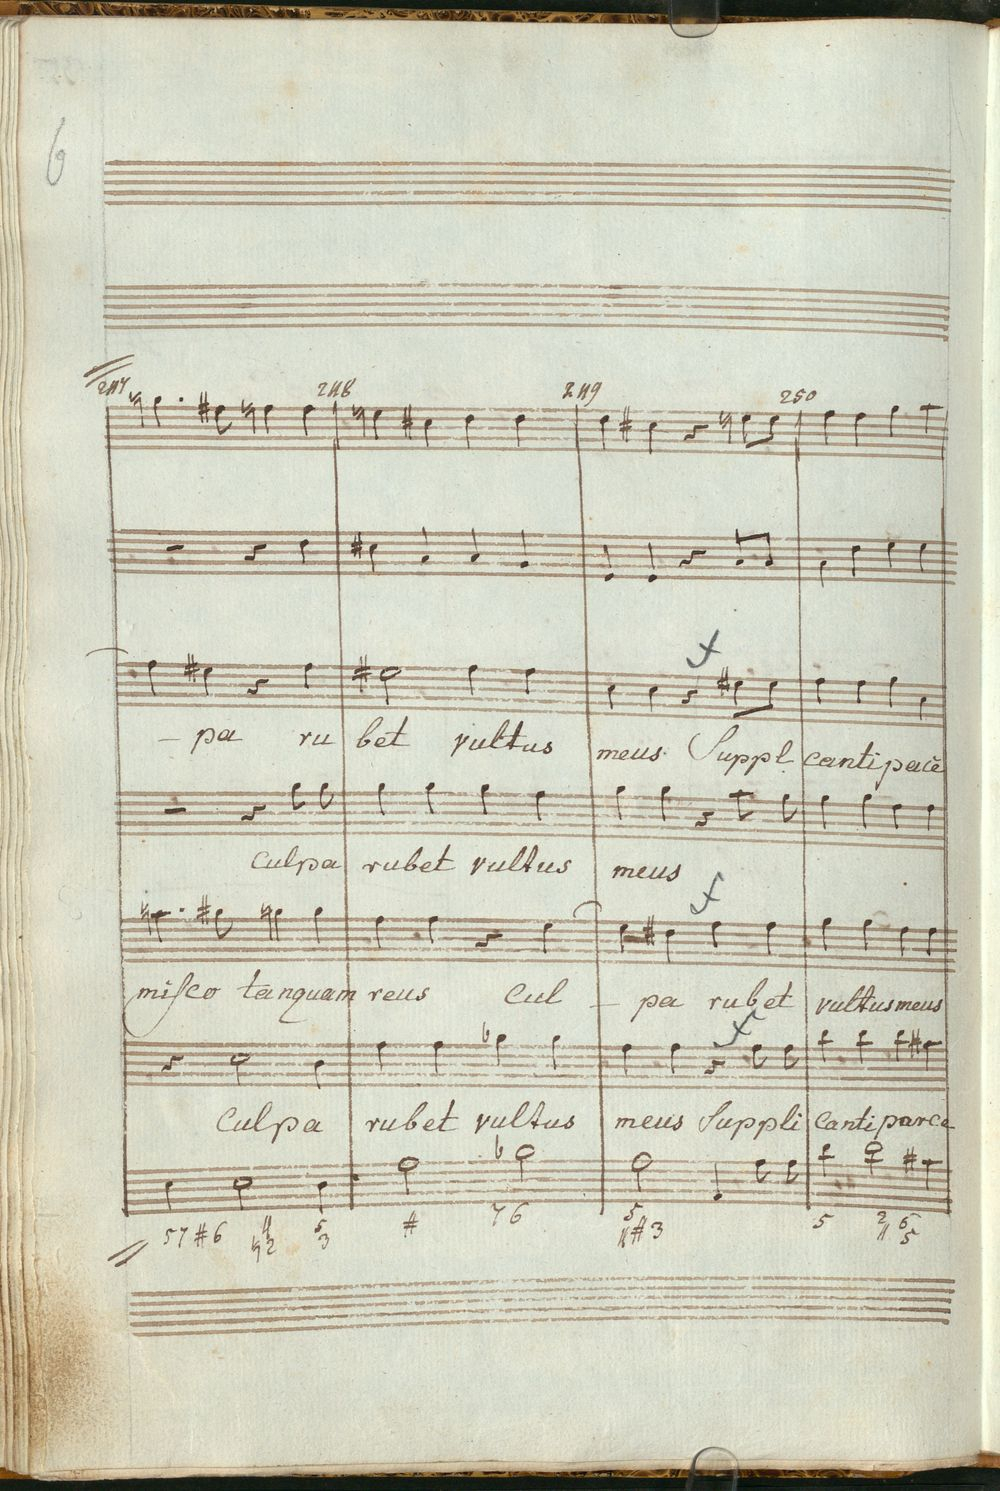 6
247 248 249 250
- pa ru bet vultus meus Suppl canti pace
culpa rubet vultus meus
misco tanquam reus Cul - pa rubet vultus meus
Culpa rubet vultus meus Suppli canti parce
57 #6 4 5 # 76 5 5 2 6
♮2 3 4#3 4 5